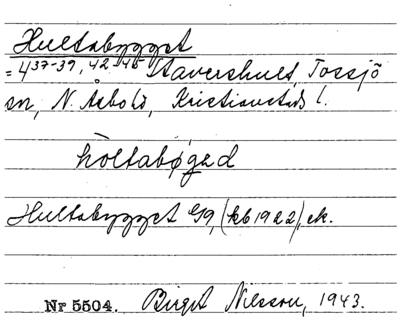 Hultabygget
= 4³⁷⁻³⁹, ⁴²⁻⁴⁵ Stavershult, Tossjö
sn, N. Åsbo hd, Kristianstads l.
hòltabøgəd
Hultabygget Gg, (kb 1922), ek.
Nr 5504. Birgit Nilsson, 1943.